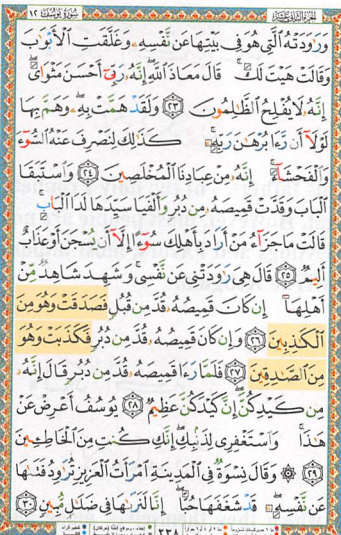 الجزء الثاني عشر
سورة يوسف ١٢
وَرَٰوَدَتْهُ ٱلَّتِى هُوَ فِى بَيْتِهَا عَن نَّفْسِهِۦ وَغَلَّقَتِ ٱلْأَبْوَٰبَ
وَقَالَتْ هَيْتَ لَكَ ۚ قَالَ مَعَاذَ ٱللَّهِ ۖ إِنَّهُۥ رَبِّىٓ أَحْسَنَ مَثْوَاىَ ۖ
إِنَّهُۥ لَا يُفْلِحُ ٱلظَّٰلِمُونَ ۝٢٣ وَلَقَدْ هَمَّتْ بِهِۦ ۖ وَهَمَّ بِهَا
لَوْلَآ أَن رَّءَا بُرْهَٰنَ رَبِّهِۦ ۚ كَذَٰلِكَ لِنَصْرِفَ عَنْهُ ٱلسُّوٓءَ
وَٱلْفَحْشَآءَ ۚ إِنَّهُۥ مِنْ عِبَادِنَا ٱلْمُخْلَصِينَ ۝٢٤ وَٱسْتَبَقَا
ٱلْبَابَ وَقَدَّتْ قَمِيصَهُۥ مِن دُبُرٍ وَأَلْفَيَا سَيِّدَهَا لَدَا ٱلْبَابِ ۚ
قَالَتْ مَا جَزَآءُ مَنْ أَرَادَ بِأَهْلِكَ سُوٓءًا إِلَّآ أَن يُسْجَنَ أَوْ عَذَابٌ
أَلِيمٌ ۝٢٥ قَالَ هِىَ رَٰوَدَتْنِى عَن نَّفْسِى ۚ وَشَهِدَ شَاهِدٌ مِّنْ
أَهْلِهَآ إِن كَانَ قَمِيصُهُۥ قُدَّ مِن قُبُلٍ فَصَدَقَتْ وَهُوَ مِنَ
ٱلْكَٰذِبِينَ ۝٢٦ وَإِن كَانَ قَمِيصُهُۥ قُدَّ مِن دُبُرٍ فَكَذَبَتْ وَهُوَ
مِنَ ٱلصَّٰدِقِينَ ۝٢٧ فَلَمَّا رَءَا قَمِيصَهُۥ قُدَّ مِن دُبُرٍ قَالَ إِنَّهُۥ
مِن كَيْدِكُنَّ ۖ إِنَّ كَيْدَكُنَّ عَظِيمٌ ۝٢٨ يُوسُفُ أَعْرِضْ عَنْ
هَٰذَا ۚ وَٱسْتَغْفِرِى لِذَنۢبِكِ ۖ إِنَّكِ كُنتِ مِنَ ٱلْخَاطِـِٔينَ
۝٢٩ ۞ وَقَالَ نِسْوَةٌ فِى ٱلْمَدِينَةِ ٱمْرَأَتُ ٱلْعَزِيزِ تُرَٰوِدُ فَتَىٰهَا
عَن نَّفْسِهِۦ ۖ قَدْ شَغَفَهَا حُبًّا ۖ إِنَّا لَنَرَىٰهَا فِى ضَلَٰلٍ مُّبِينٍ ۝٣٠
٢٣٨